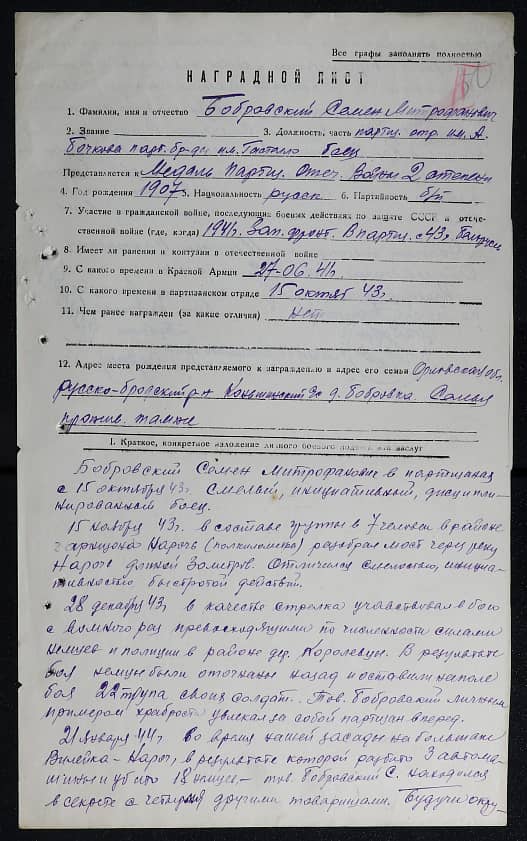 Все графы заполнять полностью
НАГРАДНОЙ ЛИСТ
1. Фамилия, имя и отчество Бобровский Семен Митрофанович
2. Звание 3. Должность, часть партиз. отр. им. А.
Бочкова парт. бр-ды им. Гастелло боец
Представляется к Медаль Партиз. Отеч. Войны 2 степени
4. Год рождения 1907 5. Национальность русск 6. Партийность б/п
7. Участие в гражданской войне, последующих боевых действиях по защите СССР и отече-
ственной войне (где, когда) 1941г. Зап. фронт. В партиз. с 43г.
8. Имеет ли ранения и контузии в отечественной войне
9. С какого времени в Красной Армии 27-06.41г.
10. С какого времени в партизанском отряде 15 октяб 43г.
11. Чем ранее награжден (за какие отличия) нет
12. Адрес места рождения представляемого к награждению и адрес его семьи Орловская обл.
русско-бродский р-н с/с д. Бобровка. Семья
прожив. тамже
I. Краткое, конкретное изложение личного боевого подвига или заслуг
Бобровский Семен Митрофанович в партизанах
с 15 октября 43г. Смелый, инициативный, дисципли-
нированный боец.
15 ноября 43г. в составе группы в 7 человек в районе
гарнизона Нарочь (полкилометра) разобрал мост через реку
Нарочь длиной 30 метров. Отличился смелостью, инициа-
тивностью, быстротой действий.
28 декабря 43г. в качестве стрелка учавствовал в бою
с во много раз превосходящими по численности силами
немцев и полиции в районе дер. Королевцы. В результате
боя немцы были отогнаны назад и оставили на поле
боя 22 трупа своих солдат. Тов. Бобровский личным
примером храбрости увлекал за собой партизан вперед.
21 января 44г. во время нашей засады на большаке
Вилейка-Нарочь, в результате которой разбито 3 автома-
шины и убито 18 немцев - тов. Бобровский С. находился
в секрете с четырмя другими товарищами. Будучи окру-